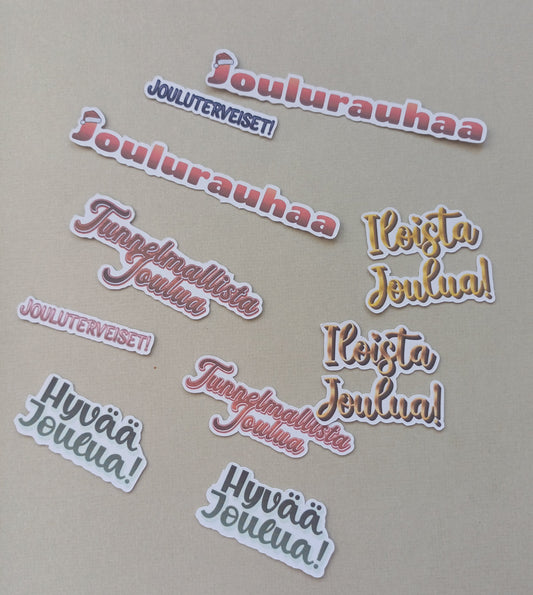 Joulurauhaa
JOULUTERVEISET!
Joulurauhaa
Tunnelmallista
Joulua
Iloista
Joulua!
JOULUTERVEISET!
Iloista
Joulua!
Tunnelmallista
Joulua
Hyvää
Joulua!
Hyvää
Joulua!